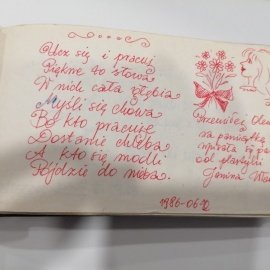 Ucz się i pracuj
Piękne to słowa
W nich cała głębia
Myśli się chowa
Bo kto pracuje
Dostanie chleba
A kto się modli
Pójdzie do nieba.
na pamiątkę
od
Janina
1986-06-12